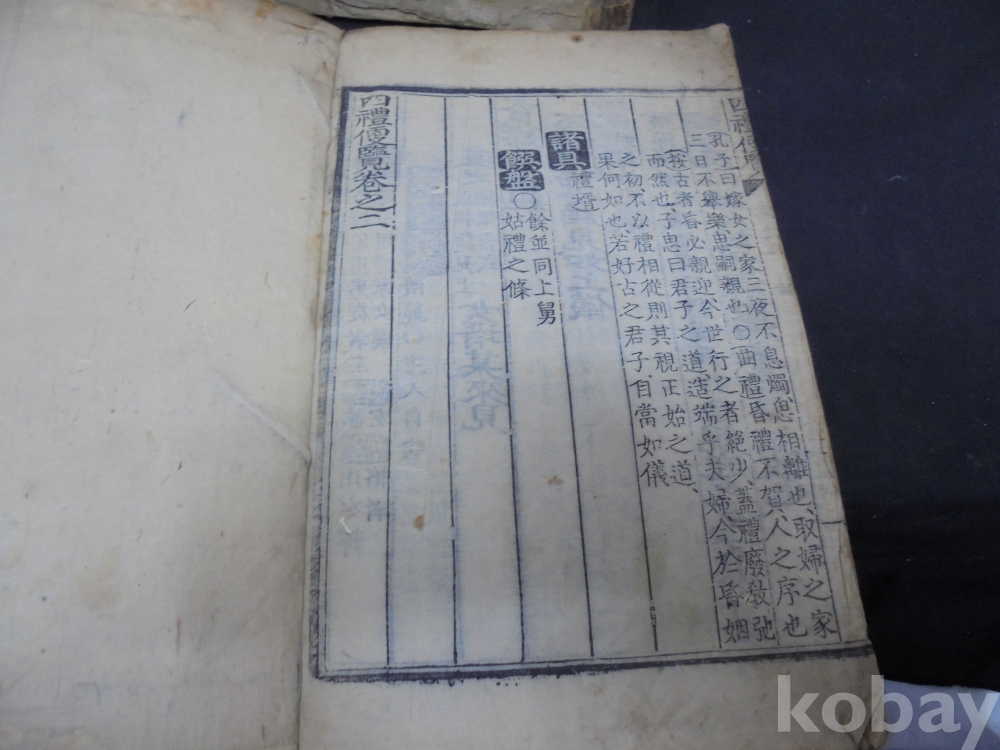 孔子曰嫁女之家三夜不息燭思相離也取婦之家
三日不擧樂思嗣親也○曲禮昏禮不賀人之序也
按古者昏必親迎今世行之者絶少蓋禮廢敎弛
而然也子思曰君子之道造端乎夫婦今於昏姻
之初不以禮相從則其視正始之道
果何如也若好古之君子自當如儀
諸具
禮壻
饌盤○餘並同上舅
姑禮之條
四禮便覽卷之二
kobay